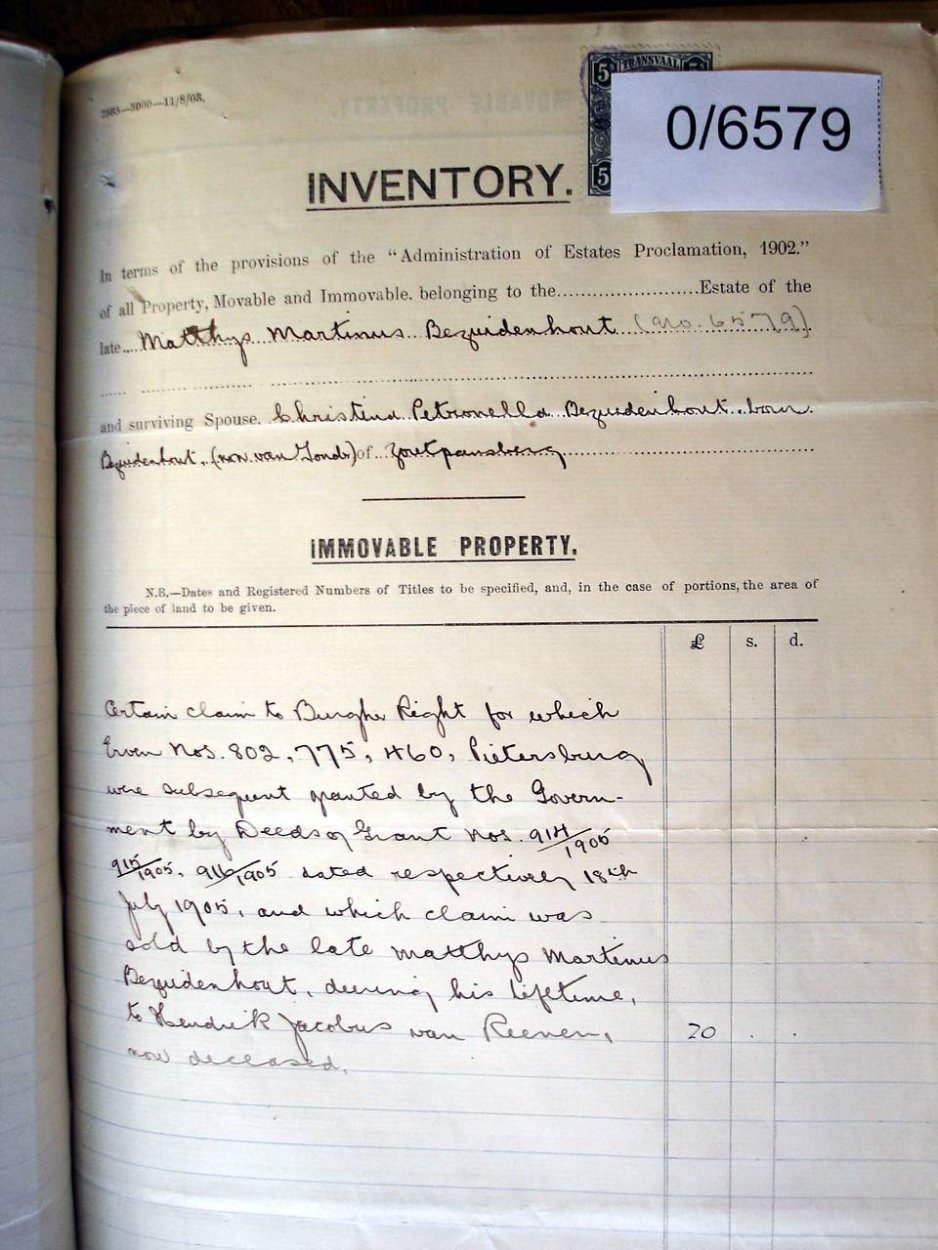 7885—3000—11/8/05.
TRANSVAAL
5
5
0/6579
INVENTORY.
In terms of the provisions of the "Administration of Estates Proclamation, 1902."
of all Property, Movable and Immovable. belonging to the......................Estate of the
late.... Matthys Martinus Bezuidenhout (No. 6579)
and surviving Spouse. Christina Petronella Bezuidenhout born
Bezuidenhout, (now van of Zoutpansberg
IMMOVABLE PROPERTY.
N.B.—Dates and Registered Numbers of Titles to be specified, and, in the case of portions, the area of
the piece of land to be given.
£ s. d.
Certain claim to Burgher Right for which
Erven Nos. 802, 775, 460, Pietersburg
were subsequent granted by the Govern-
ment by Deeds of Grant Nos. 914/1905
915/1905, 916/1905 dated respectively 18th
July 1905, and which claim was
sold by the late Matthys Martinus
Bezuidenhout, during his lifetime,
to Hendrik Jacobus van Reenen, 20 . .
now deceased.